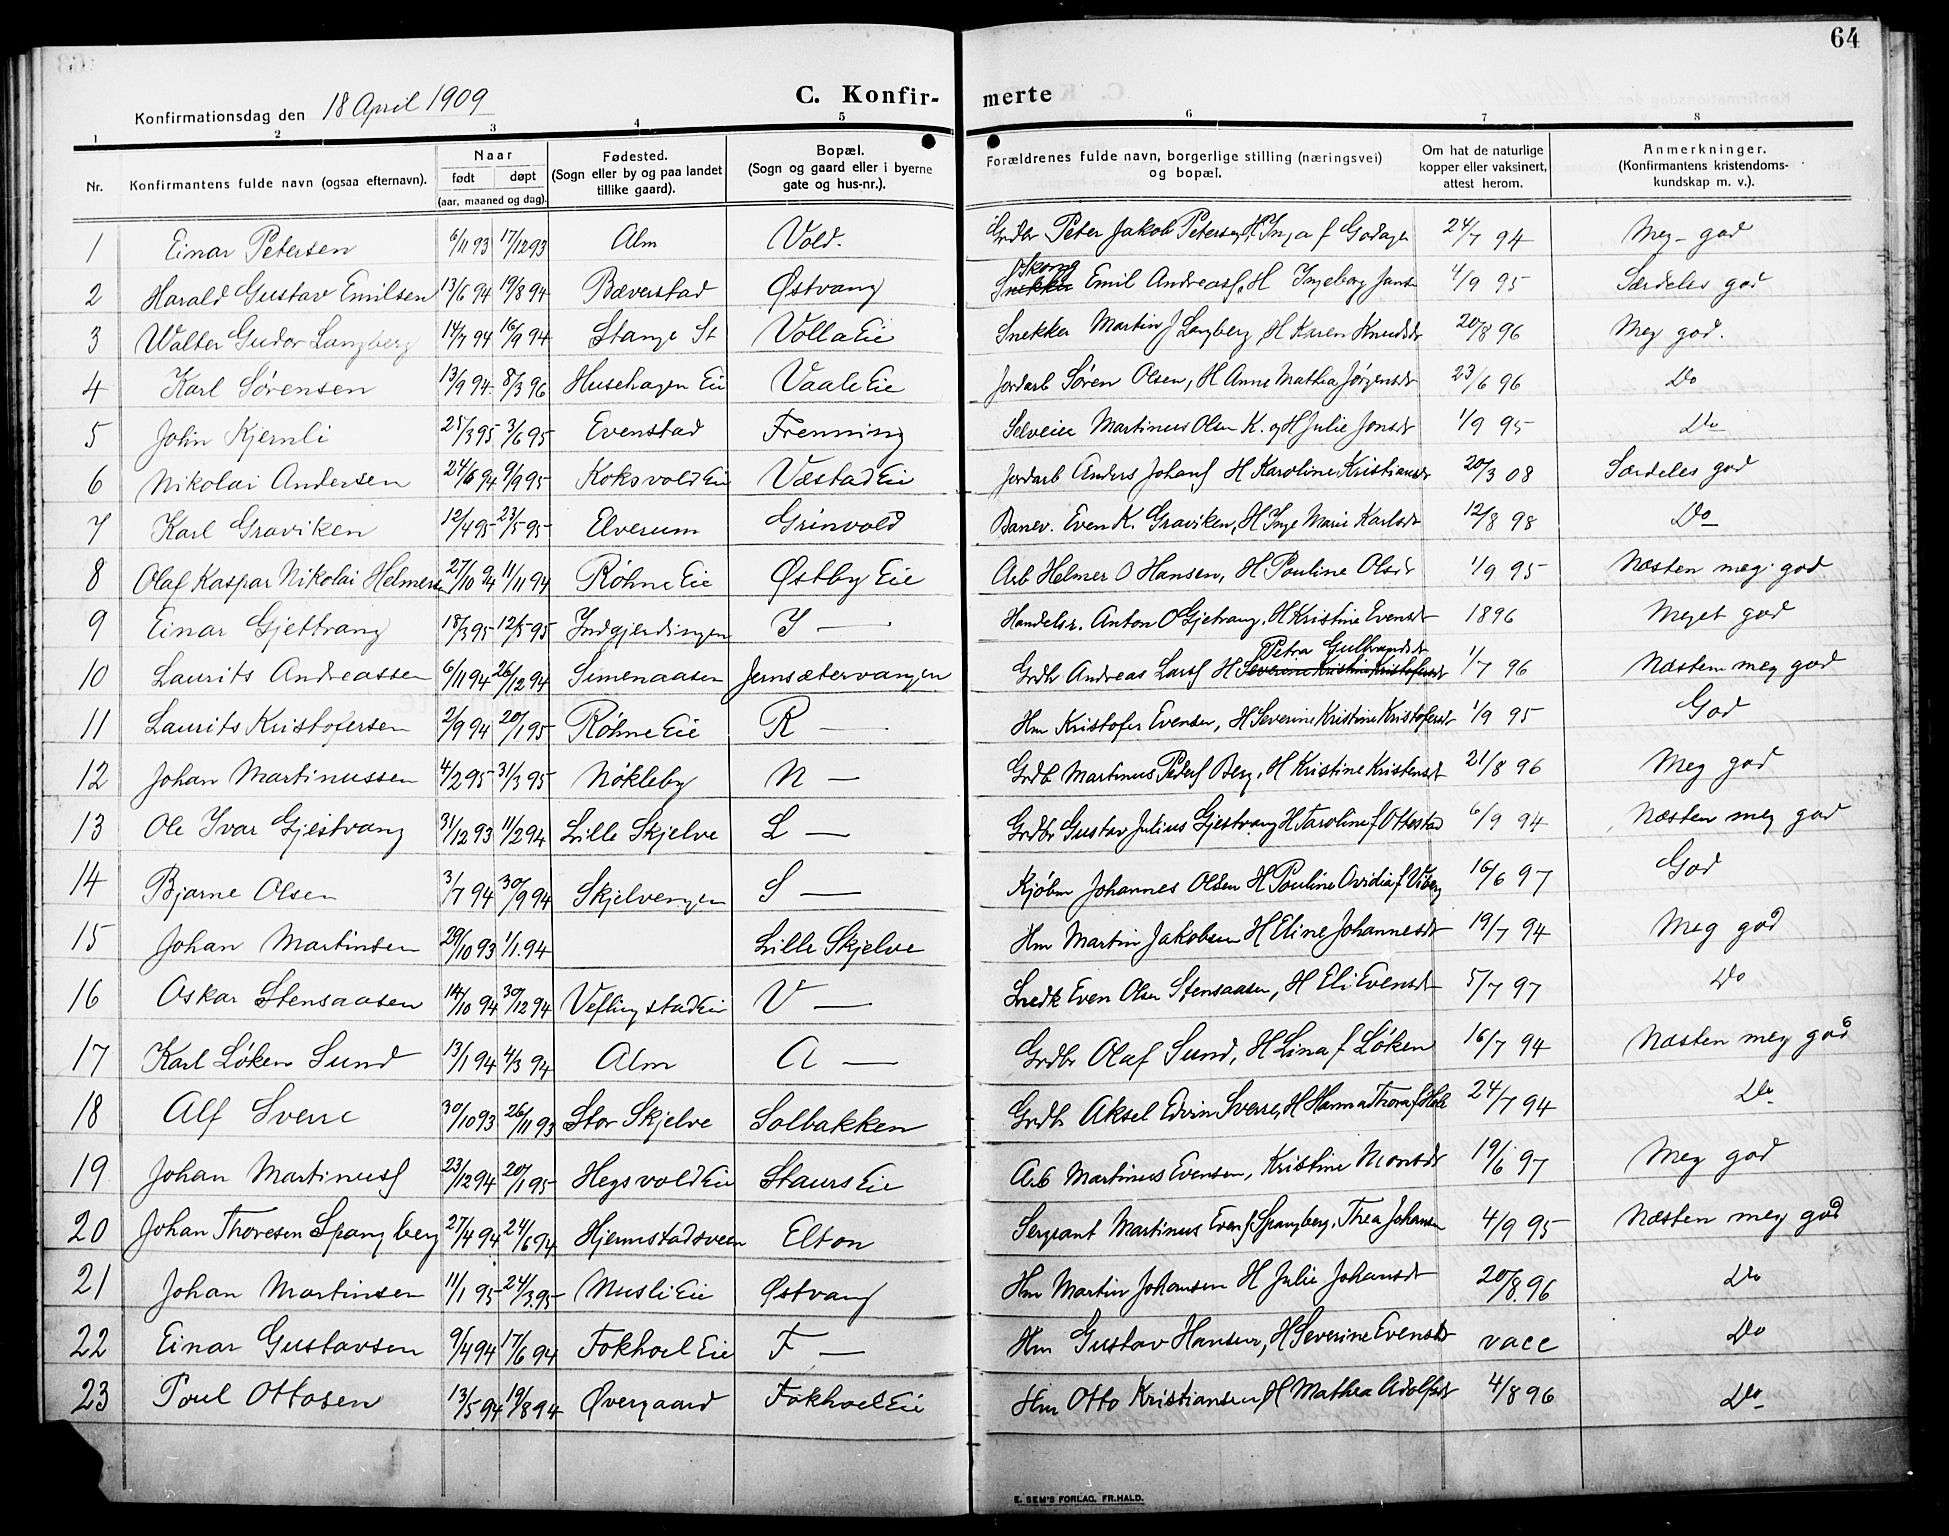 64
Konfirmationsdag den 18 April 1909 C. Konfir- merte
1 2 3 4 5 6 7 8
Nr. Konfirmantens fulde navn (ogsaa efternavn). Naar født døpt (aar, maaned og dag). Fødested. (Sogn eller by og paa landet tillike gaard). Bopæl. (Sogn og gaard eller i byerne gate og hus-nr.). Forældrenes fulde navn, borgerlige stilling (næringsvei) og bopæl. Om hat de naturlige kopper eller vaksinert, attest herom. Anmerkninger. (Konfirmantens kristendoms- kundskap m. v.).
1 Einar Petersen 6/11 93 17/12 93 Alm Vold. Grdbr Peter Jakob Petersen, H. Inga f Godager 24/7 94 Meg- god
2 Harald Gustav Emilsen 13/6 94 19/8 94 Bæverstad Østvang Snekker Skomg Emil Andreasf. H Ingeborg Jansdr 4/9 95 Særdeles god
3 Walter Gudor Langberg 14/7 94 16/9 94 Stange St Volla Eie Snekker Martin J Langberg, H Karen Knudsdr 20/8 96 Meg god.
4 Karl Sørensen 13/9 94 8/3 96 Husehagen Eie Vaale Eie Jordarb Søren Olsen, H Anne Mathea Jørgensdr 23/6 96 Do
5 John Kjernli 25/3 95 3/6 95 Evenstad Frenning Selveier Martinus Olsen K. og H Julie Jonsdr 1/9 95 Do
6 Nikolai Andersen 24/6 94 9/9 95 Koksvold Eie Væstad Eie Jordarb Anders Johanf H Karoline Kristiansdr 20/3 08 Særdeles god
7 Karl Graviken 12/4 95 23/5 95 Elverum Grinvold Banev. Even K. Graviken, H Inge Marie Karlsdr 12/8 98 Do
8 Olaf Kaspar Nikolai Helmersen 27/10 94 11/11 94 Røhne Eie Østby Eie Arb Helmer O Hansen, H Pouline Olsdr 1/9 95 Næsten meg. god
9 Einar Gjettrang 18/3 95 12/5 95 Indgjerdingen I — Handelsr. Anton O Gjetrang, H Kristine Evensdr 1896 Meget god
10 Laurits Andreassen 6/11 94 26/12 94 Simenaasen Jernsætervangen Grdbr Andreas Larsf H Severine Kristine Kristofersdr Petra Gulbrandsdr 1/7 96 Næsten meg god
11 Laurits Kristofersen 2/9 94 20/1 95 Røhne Eie R — Hm Kristofer Evensen, H Severine Kristine Kristofersdr 1/9 95 God
12 Johan Martinussen 4/2 95 31/3 95 Nøkleby N — Grdb Martinus Pedersf Berg, H Kristine Kristensdr 21/8 96 Meg god
13 Ole Ivar Gjestvang 31/12 93 11/2 94 Lille Skjelve L — Grdbr Gustav Julius Gjestvang H Taroline f Ottestad 6/9 94 Næsten meg god
14 Bjarne Olsen 3/7 94 30/9 94 Skjelvengen S — Kjøbm Johannes Olsen H Pouline Ovidia f Viberg 16/6 97 God
15 Johan Martinsen 29/10 93 1/1. 94 Lille Skjelve Hm Martin Jakobsen H Eline Johannesdr 19/7 94 Meg god
16 Oskar Stensaasen 14/10 94 30/12 94 Veflingstad Eie V — Snedk Even Olsen Stensaasen, H Eli Evensdr 5/7 97 Do
17 Karl Løken Sund 13/1 94 4/3 94 Alm A — Grdbr Olaf Sund, H Lina f Løken 16/7 94 Næsten meg god
18 Alf Sverre 30/10 93 26/11 93 Stor Skjelve Solbakken Grdbr Aksel Edvin Sverre, H Hanna Thora f Hole 24/7 94 Do
19 Johan Martinusf 23/12 94 20/1 95 Hegsvold Eie Staurs Eie Arb Martinus Evensen, Kristine Monsdr 19/6 97 Meg god
20 Johan Thoresen Spangberg 27/4 94 24/6 94 Hjermstadsveen Elton Sergeant Martinus Evenf Spangberg. Thea Johansen 4/9 95 Næsten meg god
21 Johan Martinsen 11/1 95 24/3. 95 Musli Eie Østvang Hm Martin Johansen H Julie Johansdr 20/8. 96 Do
22 Einar Gustavsen 9/4 94 17/6 94 Fokhoel Eie F — Hm Gustav Hansen, H Severine Evensdr vacc Do
23 Poul Ottosen 13/5 94 19/8 94 Øvergaard Fokhoel Eie Hm Otto Kristiansen, H Mathea Adolfsdr 4/8 96 Do
E. SEM'S FORLAG, FR.HALD.